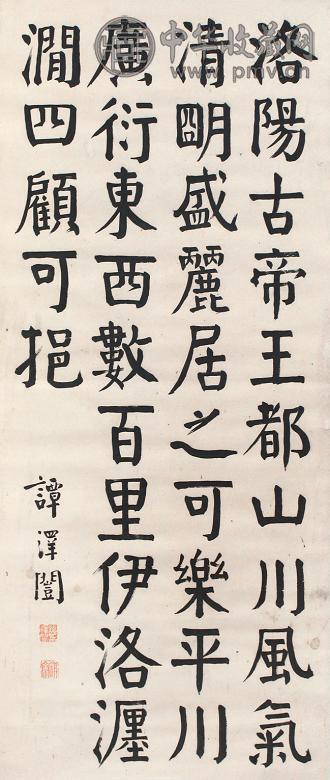 洛陽古帝王都山川風氣
清明盛麗居之可樂平川
廣衍東西數百里伊洛瀍
澗四顧可挹
譚澤闓
中华收藏网
www.pmv.cn